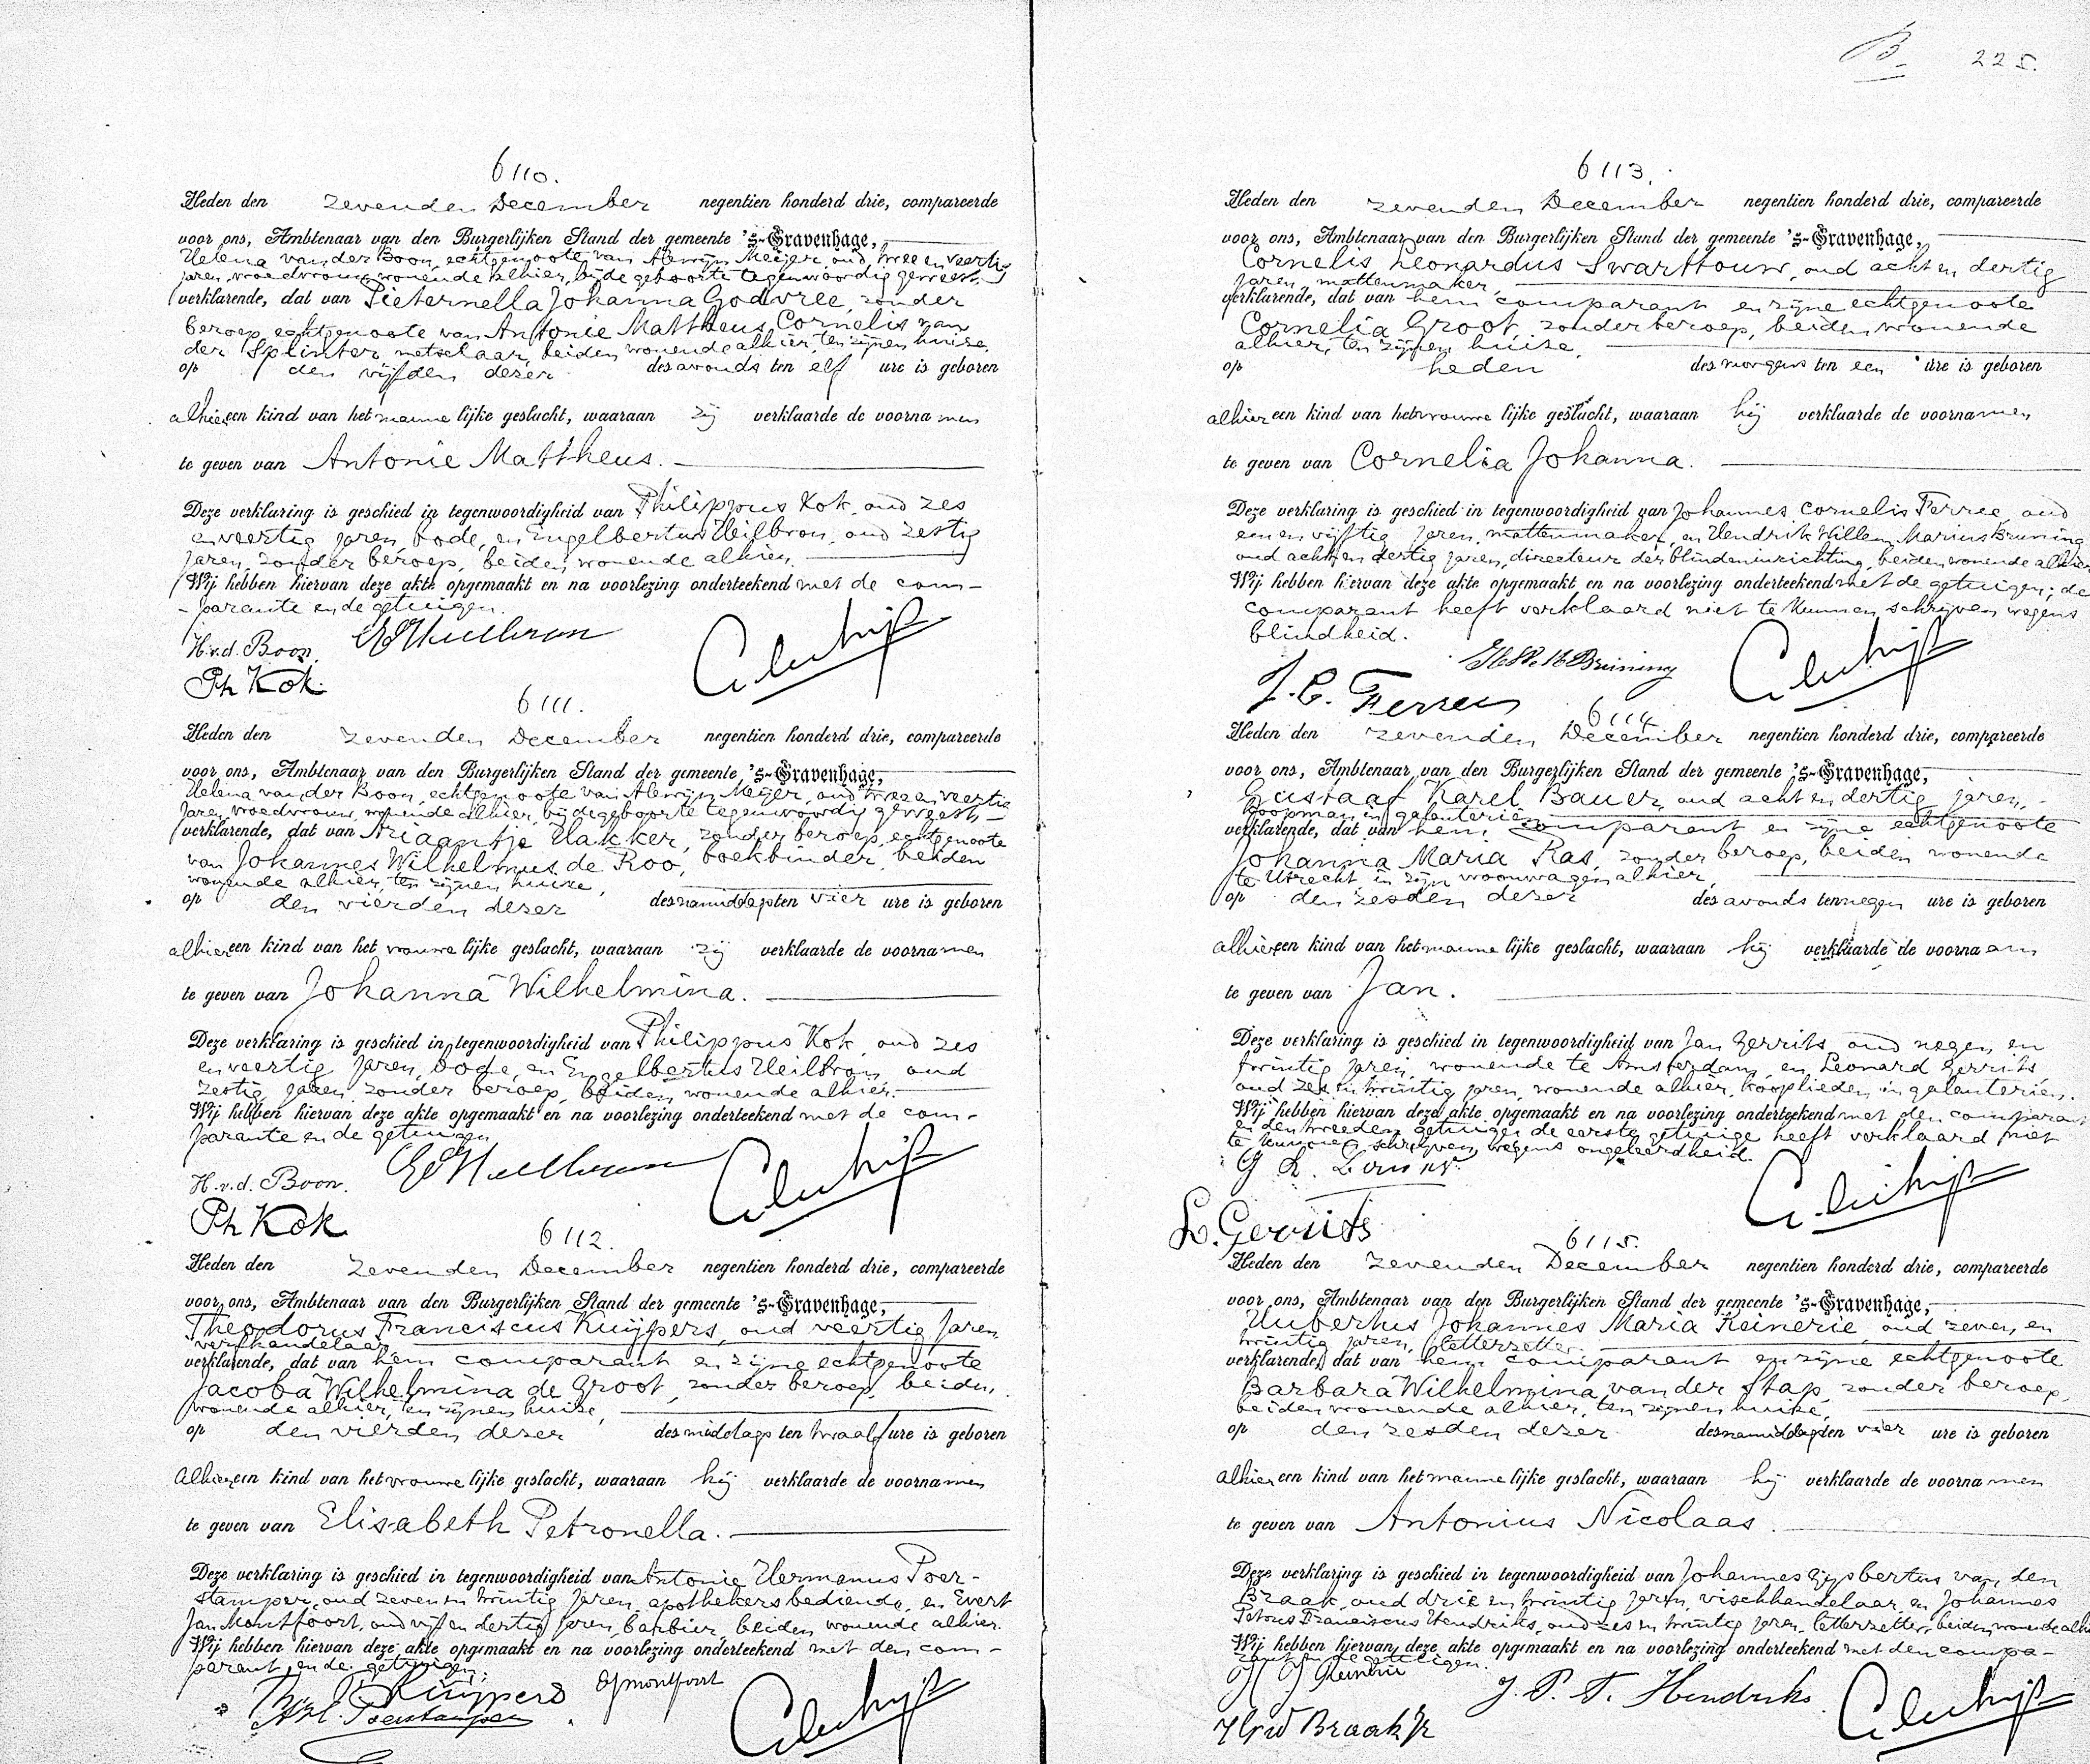 6110.
Heden den zevenden December negentien honderd drie, compareerde
voor ons, Ambtenaar van den Burgerlijken Stand der gemeente 's-Gravenhage,
Helena van der Boon, echtgenoote van Alewijn Meijer, oud twee en veertig
jaren, vroedvrouw, wonende alhier, bij de geboorte tegenwoordig geweest,
verklarende, dat van Pieternella Johanna Godvree, zonder
beroep, echtgenoote van Antonie Mattheus Cornelis van
der Splinter, metselaar, beiden wonende alhier, ten zijnen huize,
op den vijfden dezer des avonds ten elf ure is geboren
alhier een kind van het mannelijke geslacht, waaraan zij verklaarde de voornamen
te geven van Antonie Mattheus.
Deze verklaring is geschied in tegenwoordigheid van Philippus Kok, oud zes
en veertig jaren, bode, en Engelbertus Heilbron, oud zestig
jaren, zonder beroep, beiden wonende alhier.
Wij hebben hiervan deze akte opgemaakt en na voorlezing onderteekend met de com-
-parante en de getuigen.
H.v.d. Boon.
Ph Kok.
6111.
Heden den zevenden December negentien honderd drie, compareerde
voor ons, Ambtenaar van den Burgerlijken Stand der gemeente 's-Gravenhage,
Helena van der Boon, echtgenoote van Alewijn Meijer, oud twee en veertig
jaren, vroedvrouw, wonende alhier, bij de geboorte tegenwoordig geweest,
verklarende, dat van Ariaantje Hakker, zonder beroep, echtgenoote
van Johannes Wilhelmus de Roo, boekbinder, beiden
wonende alhier, ten zijnen huize,
op den vierden dezer des namiddags ten vier ure is geboren
alhier een kind van het vrouwelijke geslacht, waaraan zij verklaarde de voornamen
te geven van Johanna Wilhelmina.
Deze verklaring is geschied in tegenwoordigheid van Philippus Kok, oud zes
en veertig jaren, bode, en Engelbertus Heilbron, oud
zestig jaren, zonder beroep, beiden wonende alhier.
Wij hebben hiervan deze akte opgemaakt en na voorlezing onderteekend met de com-
parante en de getuigen
H.v.d. Boon.
Ph Kok
6112.
Heden den zevenden December negentien honderd drie, compareerde
voor ons, Ambtenaar van den Burgerlijken Stand der gemeente 's-Gravenhage,
Theodorus Franciscus Kuijpers, oud veertig jaren,
verfhandelaar,
verklarende, dat van hem comparant en zijne echtgenoote
Jacoba Wilhelmina de Groot, zonder beroep, beiden
wonende alhier, ten zijnen huize,
op den vierden dezer des middags ten twaalf ure is geboren
Alhier een kind van het vrouwelijke geslacht, waaraan hij verklaarde de voornamen
te geven van Elisabeth Petronella.
Deze verklaring is geschied in tegenwoordigheid van Antonie Hermanus Poer-
stamper, oud zeven en twintig jaren, apothekersbediende, en Evert
Jan Montfoort, oud vijf en dertig jaren, barbier, beiden wonende alhier.
Wij hebben hiervan deze akte opgemaakt en na voorlezing onderteekend met den com-
parant en de getuigen.
Kuijpers EJmontfoort
Poerstamper
B 225.
6113.
Heden den zevenden December negentien honderd drie, compareerde
voor ons, Ambtenaar van den Burgerlijken Stand der gemeente 's-Gravenhage,
Cornelis Leonardus Swarttouw, oud acht en dertig
jaren, mattenmaker,
verklarende, dat van hem comparant en zijne echtgenoote
Cornelia Groot, zonder beroep, beiden wonende
alhier, ten zijnen huize,
op heden des morgens ten een ure is geboren
alhier een kind van het vrouwelijke geslacht, waaraan hij verklaarde de voornamen
te geven van Cornelia Johanna.
Deze verklaring is geschied in tegenwoordigheid van Johannes Cornelis Ferree, oud
een en vijftig jaren, mattenmaker, en Hendrik Willem Marius Bruining
oud acht en dertig jaren, directeur der blindeninrichting, beiden wonende alhier
Wij hebben hiervan deze akte opgemaakt en na voorlezing onderteekend met de getuigen; de
comparant heeft verklaard niet te kunnen schrijven wegens
blindheid.
H.W.M Bruining
J. C. Ferree
6114
Heden den zevenden December negentien honderd drie, compareerde
voor ons, Ambtenaar van den Burgerlijken Stand der gemeente 's-Gravenhage,
Gustaaf Karel Bauer, oud acht en dertig jaren,
koopman in galanterien,
verklarende, dat van hem comparant en zijne echtgenoote
Johanna Maria Ras, zonder beroep, beiden wonende
te Utrecht in zijn woonwagen alhier,
op den zesden dezer des avonds ten negen ure is geboren
alhier een kind van het mannelijke geslacht, waaraan hij verklaarde de voornaam
te geven van Jan.
Deze verklaring is geschied in tegenwoordigheid van Jan Gerrits, oud negen en
twintig jaren, wonende te Amsterdam, en Leonard Gerrits
oud zes en twintig jaren, wonende alhier, kooplieden in galanterien.
Wij hebben hiervan deze akte opgemaakt en na voorlezing onderteekend met den comparant
en den tweeden getuige; de eerste getuige heeft verklaard niet
te kunnen schrijven wegens ongeleerdheid.
L. Gerrits
6115.
Heden den zevenden December negentien honderd drie, compareerde
voor ons, Ambtenaar van den Burgerlijken Stand der gemeente 's-Gravenhage,
Hubertus Johannes Maria Reinerie, oud zeven en
twintig jaren, letterzetter,
verklarende, dat van hem comparant en zijne echtgenoote
Barbara Wilhelmina van der Stap, zonder beroep,
beiden wonende alhier, ten zijnen huize,
op den zesden dezer des namiddags ten vier ure is geboren
alhier een kind van het mannelijke geslacht, waaraan hij verklaarde de voornamen
te geven van Antonius Nicolaas.
Deze verklaring is geschied in tegenwoordigheid van Johannes Gijsbertus van den
Braak, oud drie en twintig jaren, vischhandelaar, en Johannes
Petrus Franciscus Hendriks, oud zes en twintig jaren, letterzetter, beiden wonende alhier
Wij hebben hiervan deze akte opgemaakt en na voorlezing onderteekend met den compa-
rant en de getuigen.
H J Reinerie J. P. F. Hendriks
Braak Jr